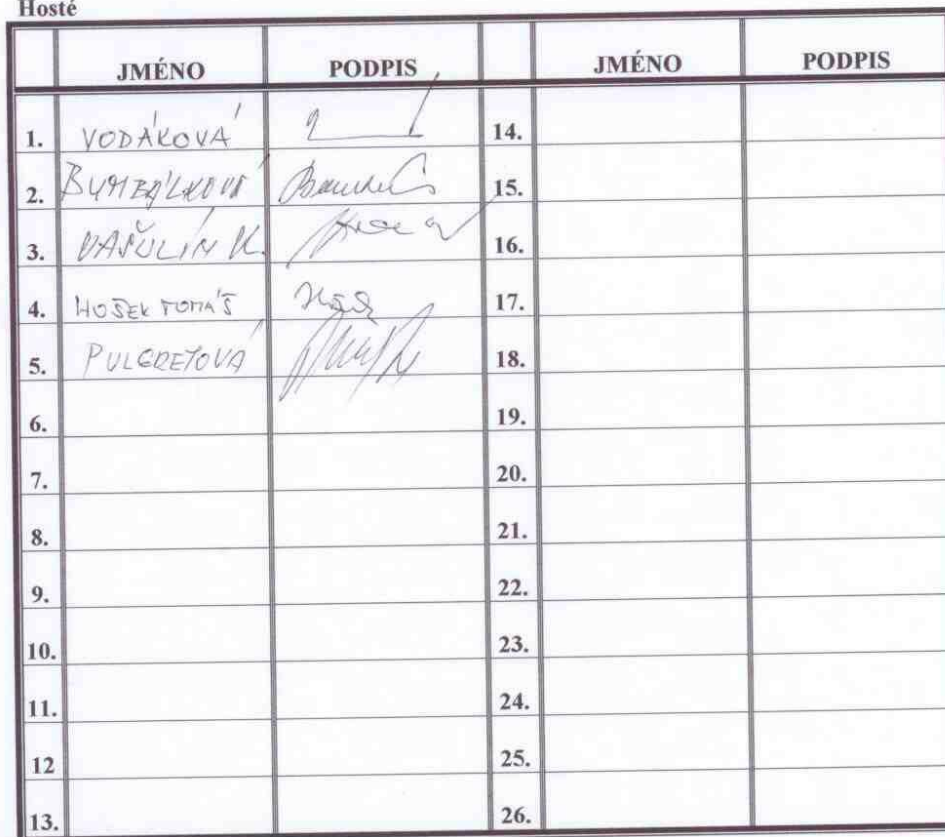 Hosté
JMÉNO PODPIS JMÉNO PODPIS
1. VODÁKOVÁ 14.
2. BUMBÁLKOVÁ 15.
3. VAŠULÍN 16.
4. HOŠEK TOMÁŠ 17.
5. 18.
6. 19.
7. 20.
8. 21.
9. 22.
10. 23.
11. 24.
12 25.
13. 26.